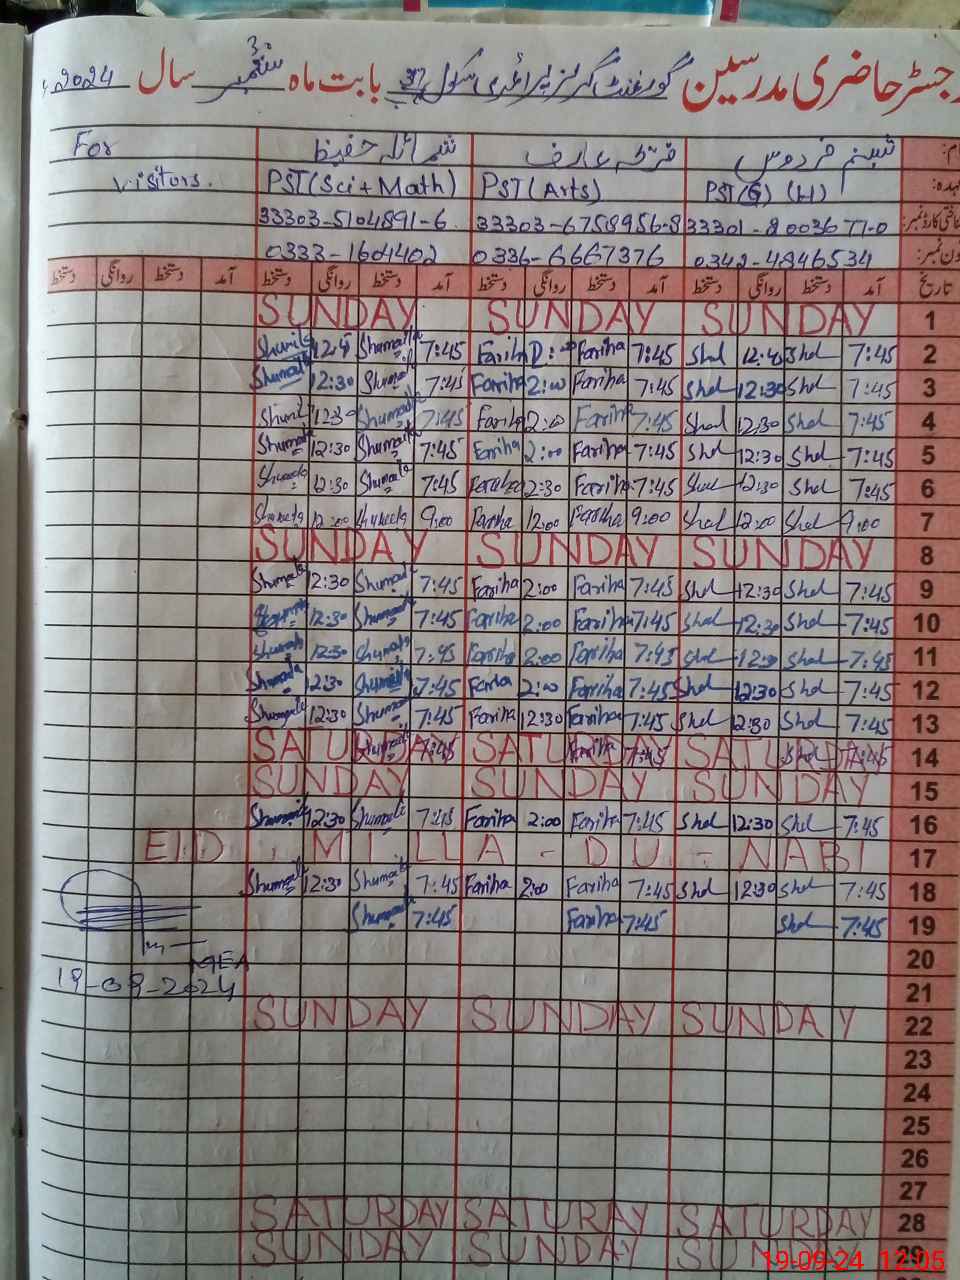 رجسٹر حاضری مدرسین گورنمنٹ گرلز پرائمری سکول بابت ماہ ستمبر سال 2024
نام: تبسم فردوس شمائلہ حفیظ For
عہدہ: PST (H) PST(Arts) PST(Sci+Math) visitors.
شناختی کارڈ نمبر: 33303-6758956-8 33303-5104891-6
فون نمبر: 0342-4846534 0336-6667376 0333-1604402
تاریخ آمد دستخط روانگی دستخط آمد دستخط روانگی دستخط آمد دستخط روانگی دستخط آمد دستخط روانگی دستخط
SUNDAY SUNDAY SUNDAY 1
Shumaila 7:45 Fariha 7:45 Shd Shd 7:45 2
Shumaila 12:30 Shumaila 7:45 Fariha 2:00 Fariha 7:45 Shd 12:30 Shd 7:45 3
12:30 Shumaila 7:45 Fariha 2:00 Fariha 7:45 Shd 12:30 Shd 7:45 4
Shumaila 12:30 Shumaila 7:45 Fariha 2:00 Fariha 7:45 Shd 12:30 Shd 7:45 5
Shumaila 12:30 Shumaila 7:45 Fariha 12:30 Fariha 7:45 Shd 12:30 Shd 7:45 6
Shumaila 12:00 Shumaila 9:00 Fariha 12:00 Fariha 9:00 Shd 12:00 Shd 9:00 7
SUNDAY SUNDAY SUNDAY 8
Shumaila 12:30 Shumaila 7:45 Fariha 2:00 Fariha 7:45 Shd 12:30 Shd 7:45 9
Shumaila 12:30 Shumaila 7:45 Fariha 2:00 Fariha 7:45 Shd 12:30 Shd 7:45 10
Shumaila 12:30 Shumaila 7:45 Fariha 2:00 Fariha 7:45 Shd 12:30 Shd 7:45 11
Shumaila 12:30 Shumaila 7:45 Fariha 2:00 Fariha 7:45 Shd 12:30 Shd 7:45 12
Shumaila 12:30 Shumaila 7:45 Fariha 12:30 Fariha 7:45 Shd 12:30 Shd 7:45 13
SATURDAY Shumaila 7:45 SATURDAY Fariha 7:45 SATURDAY Shd 7:45 14
SUNDAY SUNDAY SUNDAY 15
Shumaila 12:30 Shumaila 7:45 Fariha 2:00 Fariha 7:45 Shd 12:30 Shd 7:45 16
EID - MILLA - DU - NABI 17
Shumaila 12:30 Shumaila 7:45 Fariha 2:00 Fariha 7:45 Shd 12:30 Shd 7:45 18
Shumaila 7:45 Fariha 7:45 Shd 7:45 19
MEA 20
19-09-2024 21
SUNDAY SUNDAY SUNDAY 22
23
24
25
26
27
SATURDAY SATURAY SATURDAY 28
SUNDAY SUNDAY SUNDAY 29
19-09-24 12:05